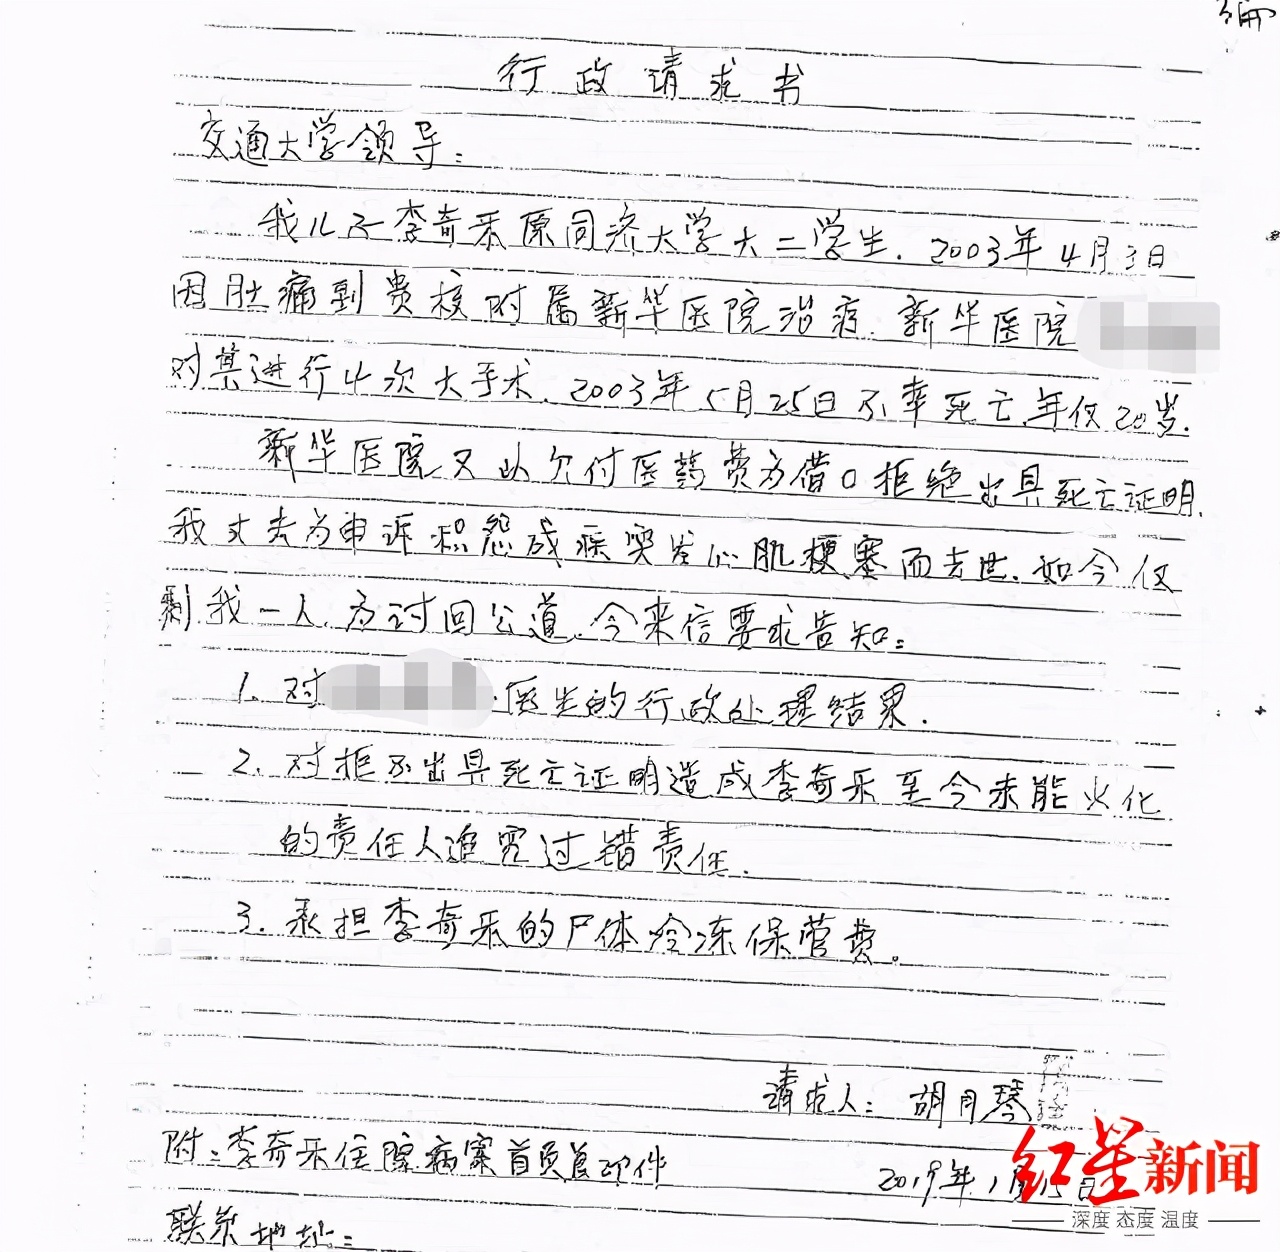 编
行政请求书
交通大学领导：
我儿子李奇乐原同济大学大二学生．2003年4月3日
因肚痛到贵校附属新华医院治疗．新华医院
对其进行4次大手术．2003年5月25日不幸死亡．年仅20岁．
新华医院又以欠付医药费为借口拒绝出具死亡证明．
我丈夫为申诉积怨成疾突发心肌梗塞而去世．如今仅
剩我一人．为讨回公道．今来信要求告知：
1．对 医生的行政处理结果．
2．对拒不出具死亡证明造成李奇乐至今未能火化
的责任人追究过错责任．
3．承担李奇乐的尸体冷冻保管费。
请求人：胡月琴
附：李奇乐住院病案首页复印件
2019年1月15日
联系地址：
红星新闻
深度 态度 温度